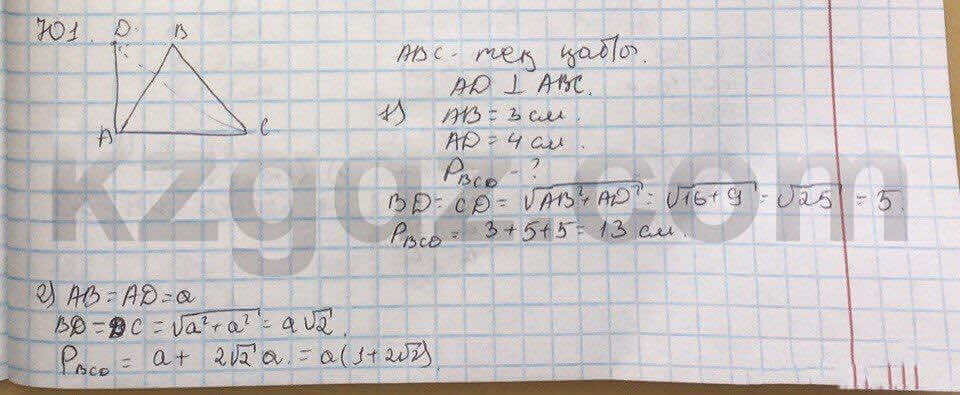 701.
D B
A C
ABC - тең қабы.
AD ⊥ ABC.
1) AB = 3 см.
AD = 4 см.
P_BCD - ?
BD = CD = √AB²+AD² = √16+9 = √25 = 5.
P_BCD = 3+5+5 = 13 см.
2) AB = AD = a
BD = DC = √a²+a² = a√2.
P_BCD = a + 2√2 a. = a(1+2√2).
kzgdz.com